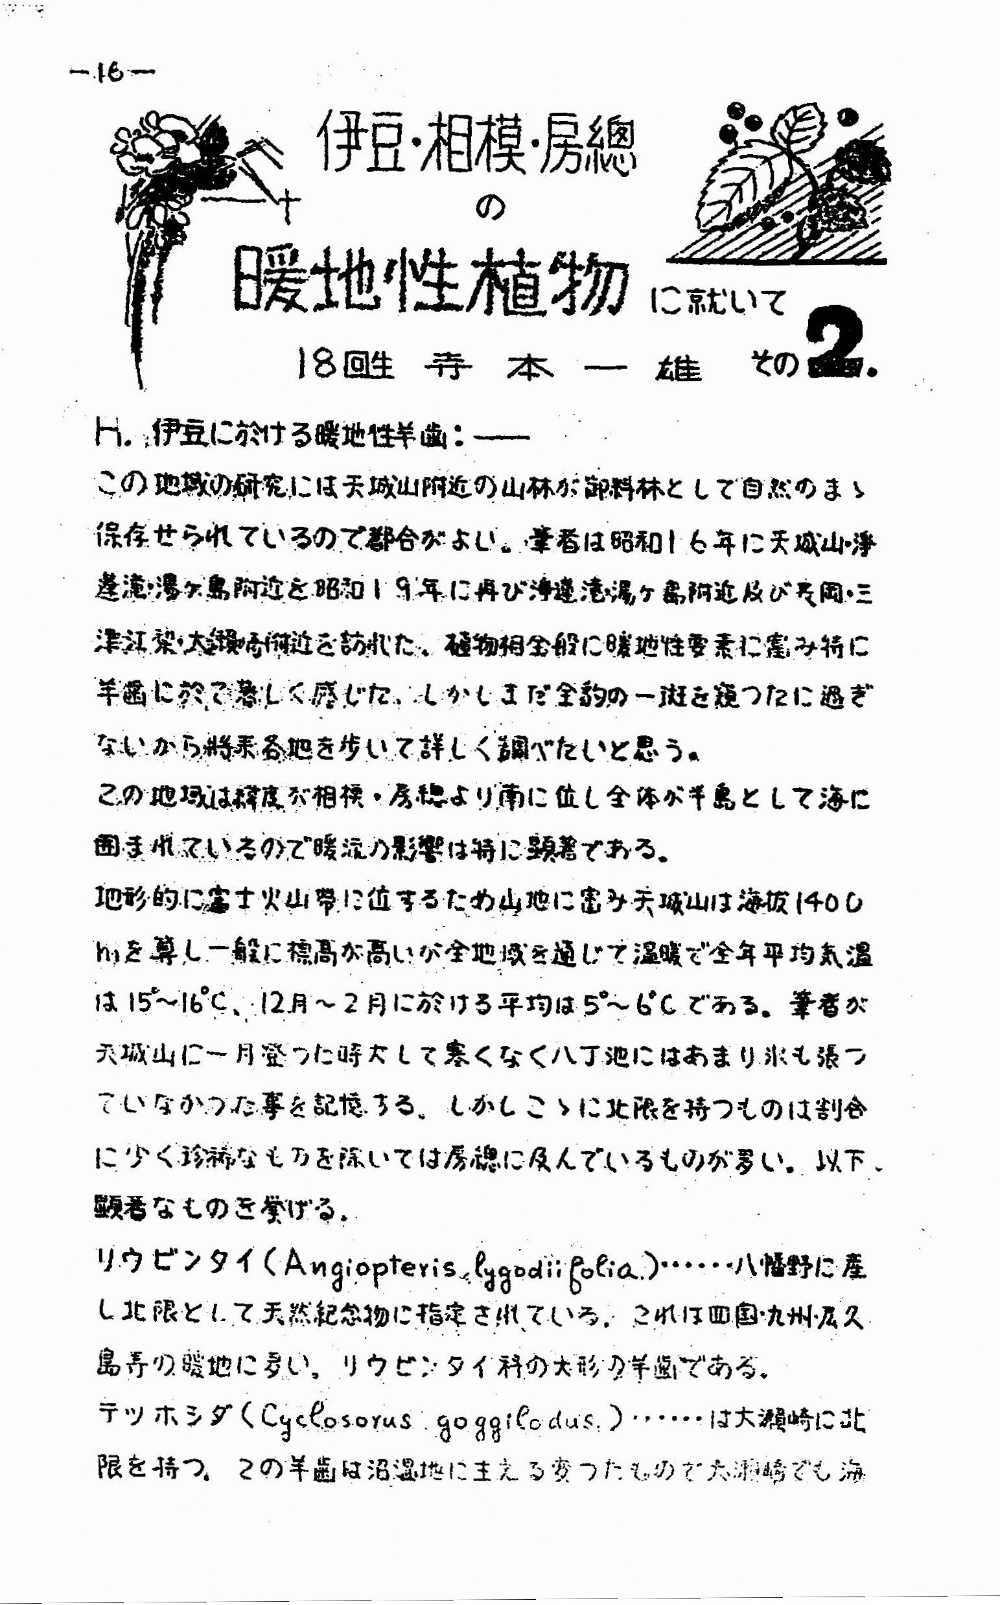 －16－
伊豆・相模・房總
の
暖地性植物に就いて
18回生 寺本一雄 その2.
H. 伊豆に於ける暖地性羊歯：――
この地域の研究には天城山附近の山林が御料林として自然のまゝ
保存せられているので都合がよい。筆者は昭和16年に天城山・浄
蓮滝・湯ヶ島附近を昭和19年に再び浄蓮滝・湯ヶ島附近及び長岡・三
津江梨・大瀬崎附近を訪れた。植物相全般に暖地性要素に富み特に
羊歯に於て著しく感じた。しかしまだ全豹の一斑を窺つたに過ぎ
ないから将来各地を歩いて詳しく調べたいと思う。
この地域は緯度が相模・房總より南に位し全体が半島として海に
囲まれているので暖流の影響は特に顕著である。
地形的に富士火山帯に位するため山地に富み天城山は海抜1400
mを算し一般に標高が高いが全地域を通じて温暖で全年平均気温
は15°～16°C、12月～2月に於ける平均は5°～6°Cである。筆者が
天城山に一月登つた時大して寒くなく八丁池にはあまり氷も張つ
ていなかつた事を記憶する。しかしこゝに北限を持つものは割合
に少く珍稀なものを除いては房總に及んでいるものが多い。以下、
顕著なものを挙げる。
リウビンタイ(Angiopteris lygodiifolia)……八幡野に産
し北限として天然紀念物に指定されている。これは四国・九州・屋久
島等の暖地に多い。リウビンタイ科の大形の羊歯である。
テツホシダ(Cyclosorus goggilodus.)……は大瀬崎に北
限を持つ。この羊歯は沼湿地に生える変つたもので大瀬崎でも海